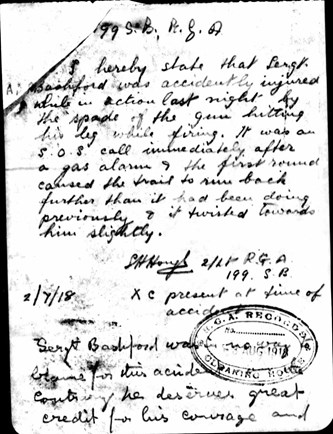 199 S.B. R.G.A
I hereby state that Sergt.
Bashford was accidently injured
while in action last night by
the spade of the gun hitting
his leg while firing. It was an
S.O.S. call immediately after
a gas alarm & the first round
caused the trail to run back
further than it had been doing
previously & it twisted towards
him slightly.
2/Lt R.G.A
199. S.B
2/7/18 X C present at time of
accident
R.G.A. RECORDS
No.
AUG 1918
CLEARING HOUSE
Sergt Bashford was in no way
blame for this
he deserves great
credit for his courage and